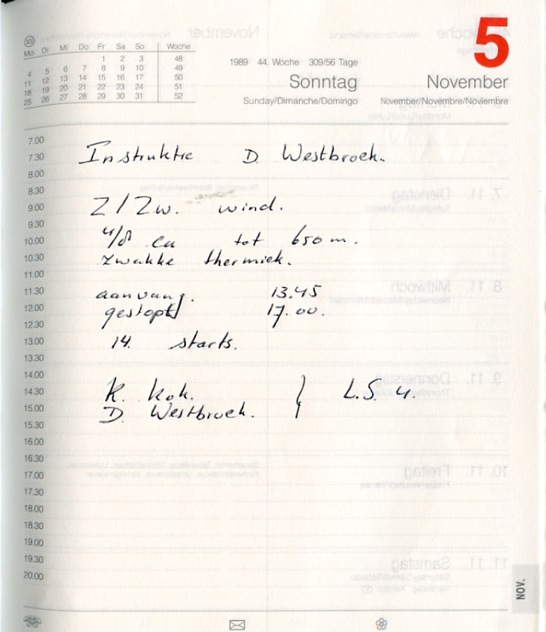 Mo Di Mi Do Fr Sa So Woche
1 2 3 48
4 5 6 7 8 9 10 49
11 12 13 14 15 16 17 50
18 19 20 21 22 23 24 51
25 26 27 28 29 30 31 52
1989 44. Woche 309/56 Tage
Sonntag
Sunday/Dimanche/Domingo
5
November
November/Novembre/Noviembre
7.00
7.30 Instruktie D. Westbroek.
8.00
8.30
9.00 Z/Zw. wind.
9.30
10.00 4/8 Cu tot 650 m.
10.30 zwakke thermiek.
11.00
11.30 aanvang. 13.45
12.00 gestopt 17.00.
12.30
13.00 14. starts.
13.30
14.00
14.30 R. Kok. } L.S. 4.
15.00 D. Westbroek.
15.30
16.00
16.30
17.00
17.30
18.00
18.30
19.00
19.30
20.00
NOV.